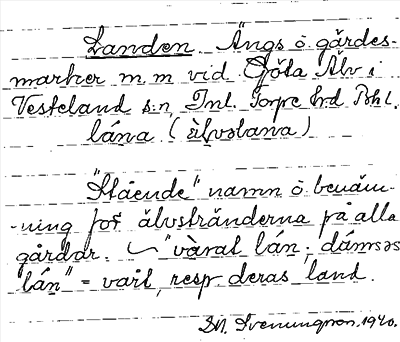 Landen. Ängs o gärdes-
marker m m vid Göta Älv i
Västerland s:n Inl. Torpe hrd Bhl.
låna (älvslana)
"Stående" namn o benäm-
-ning för älvstränderna på alla
gårdar. "vàrat lán; dámsas
lán" = vårt, resp. deras land.
1920.